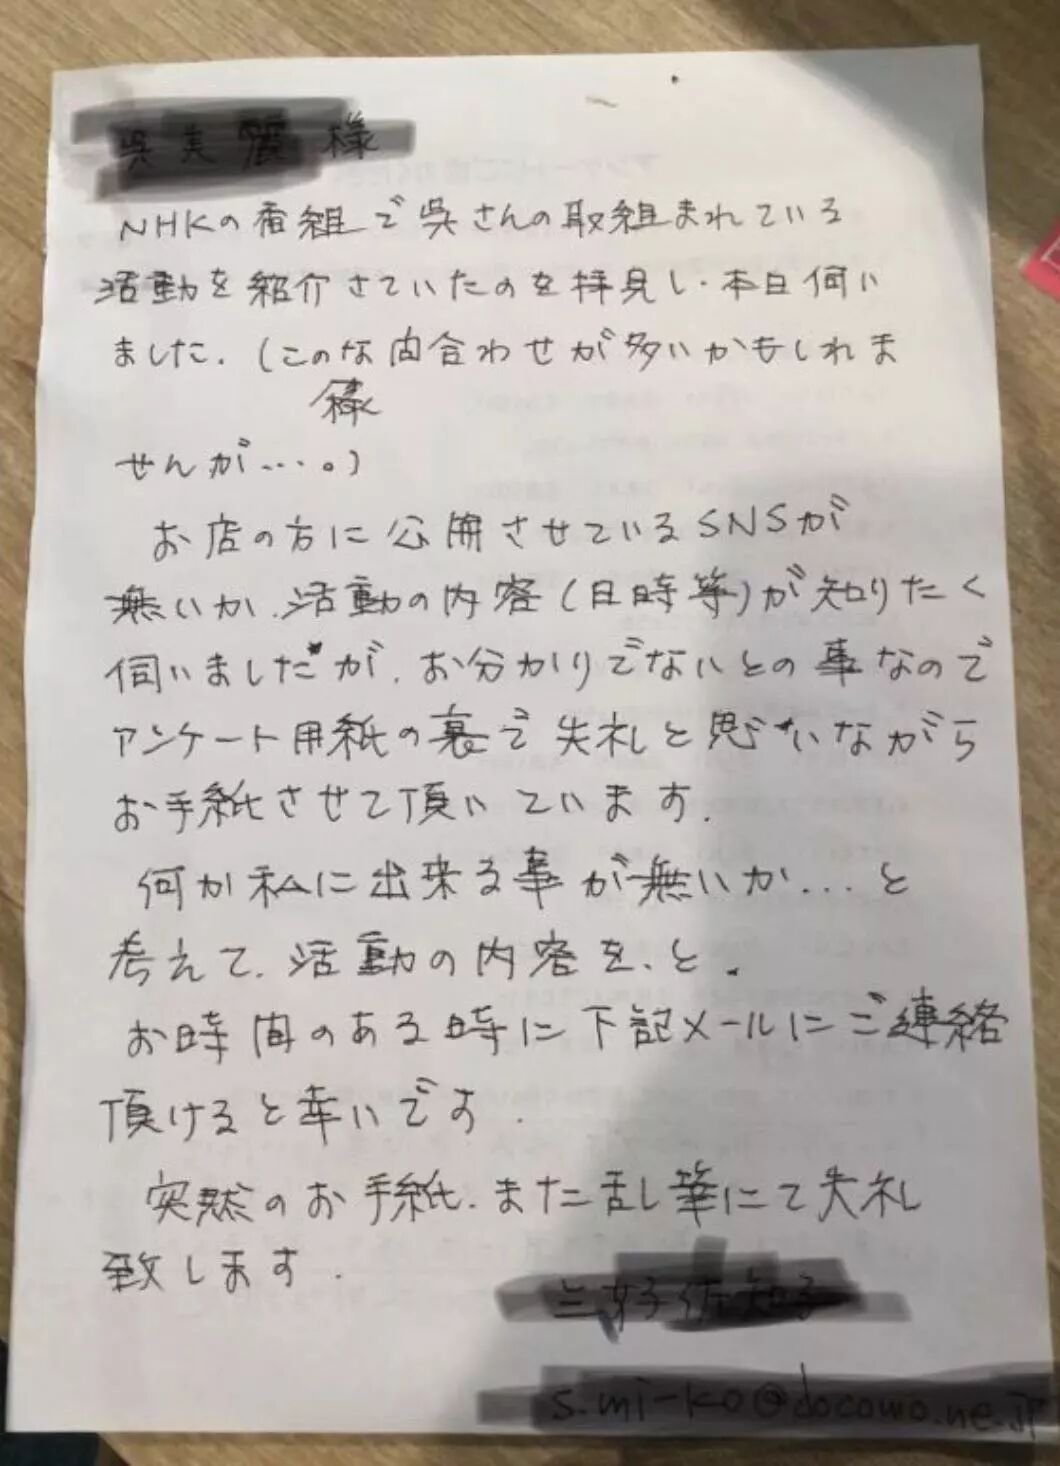 様
NHKの番組で呉さんの取組まれている
活動を紹介さていたのを拝見し.本日伺い
ました.(このな問合わせが多いかもしれま
様
せんが…。)
お店の方に公開させているSNSが
無いか.活動の内容(日時等)が知りたく
伺いましたが.お分かりでないとの事なので
アンケート用紙の裏で失礼と思いながら
お手紙させて頂いています.
何か私に出来る事が無いか…と
考えて.活動の内容を、と.
お時間のある時に下記メールにご連絡
頂けると幸いです.
突然のお手紙.また乱し筆にて失礼
致します.